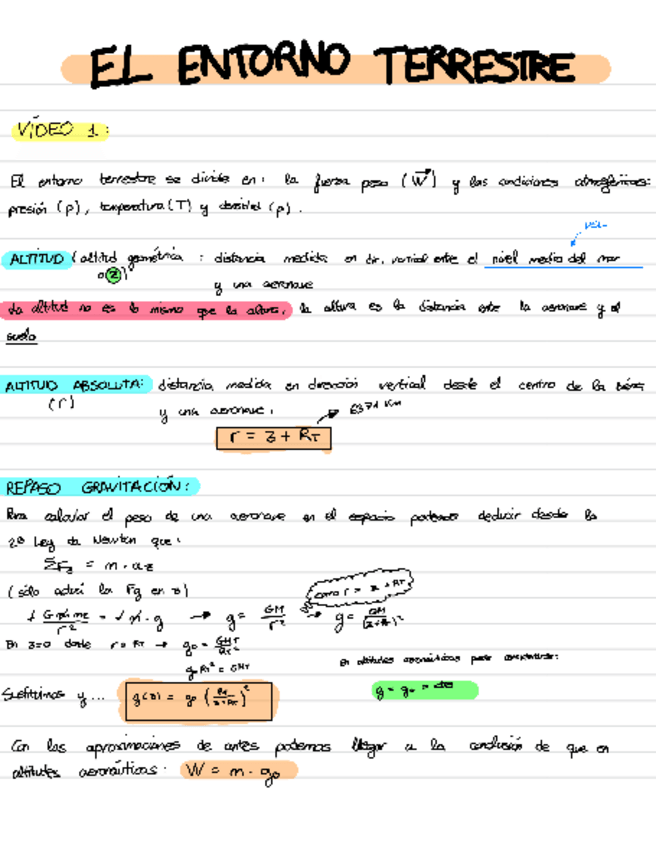 EL ENTORNO TERRESTRE
VÍDEO 1:
El entorno terrestre se divide en: la fuerza peso (W) y las condiciones atmosféricas:
presión (p), temperatura (T) y densidad (ρ).
ALTITUD (altitud geométrica : distancia medida en dir. vertical entre el nivel medio del mar
o z)
y una aeronave
La altitud no es lo mismo que la altura, la altura es la distancia entre la aeronave y el
suelo
ALTITUD ABSOLUTA: distancia medida en dirección vertical desde el centro de la tierra
(r)
y una aeronave. 6371 Km
r = z + RT
REPASO GRAVITACIÓN:
Para calcular el peso de una aeronave en el espacio podemos deducir desde la
2ª Ley de Newton que:
ΣFz = m · az
(sólo actúa la Fg en z)
como r = z + RT
g = GM/r² → g = GM/(z+RT)²
En z=0 donde r = RT → g0 = GMT/RT²
g0 RT² = GMT
En altitudes aeronáuticas puede considerarse:
Sustituimos y ... g(z) = g0 (RT/(z+RT))²
g = g0 = cte
Con las aproximaciones de antes podemos llegar a la conclusión de que en
altitudes aeronáuticas: W = m · g0